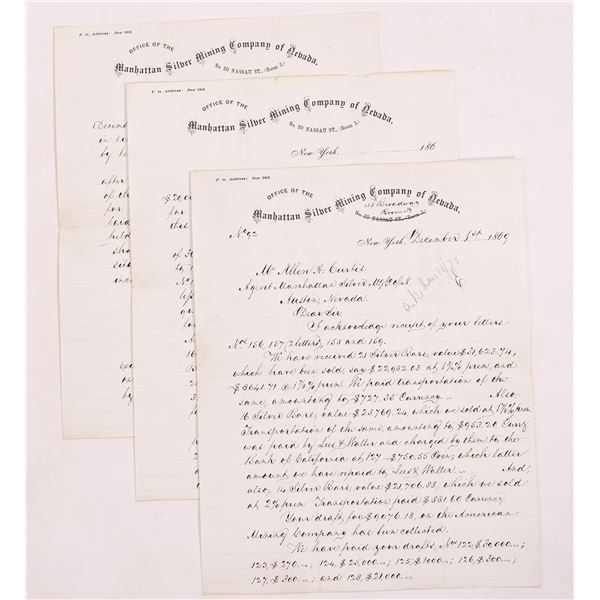 P. O. Address: Box 263.
OFFICE OF THE
Manhattan Silver Mining Company of Nevada,
No. 20 NASSAU ST., (Room 3.)
Decem
in
by
after
of
for
P. O. Address: Box 263.
OFFICE OF THE
Manhattan Silver Mining Company of Nevada,
No. 20 NASSAU ST., (Room 3.)
New York, 186
for
to
P. O. Address: Box 263.
OFFICE OF THE
Manhattan Silver Mining Company of Nevada,
Broadway
No. 20 NASSAU ST., (Room 3.)
No 92
New York, December 1st 1869
Mr Allen A. Curtis,
Agent Manhattan Silver Mg Co
Austin, Nevada.
Dear Sir
I acknowledge receipt of your letters
Nos 156, 157 (2 letters), 158 and 159.
We have received 21 Silver Bars, value $31,623.74,
which have been sold, say $22,982.03 at 1¾% prem, and
@ 1⅞% prem. We paid transportation of the
same, amounting to $727.35 Currency. Also,
16 Silver Bars, value $23,769.24, which we sold at prem
Transportation of the same, amounting to $953.20 Curry
was paid by Lees & Waller and charged by them to the
Bank of California at 127 — $750.55 Coin; which latter
amount we have repaid to Lees & Waller. And,
also, 14 Silver Bars value $21,706.88, which we sold
at 2% prem Transportation paid $881.60 Currency
Your draft, for $9,076.18, on the American
Mining Company has been collected.
We have paid your drafts, Nos 122, $30,000...;
123, $270...; 124, $25,000...; 125, $1000...; 126, $300...;
127, $300...; and 128, $21,000...